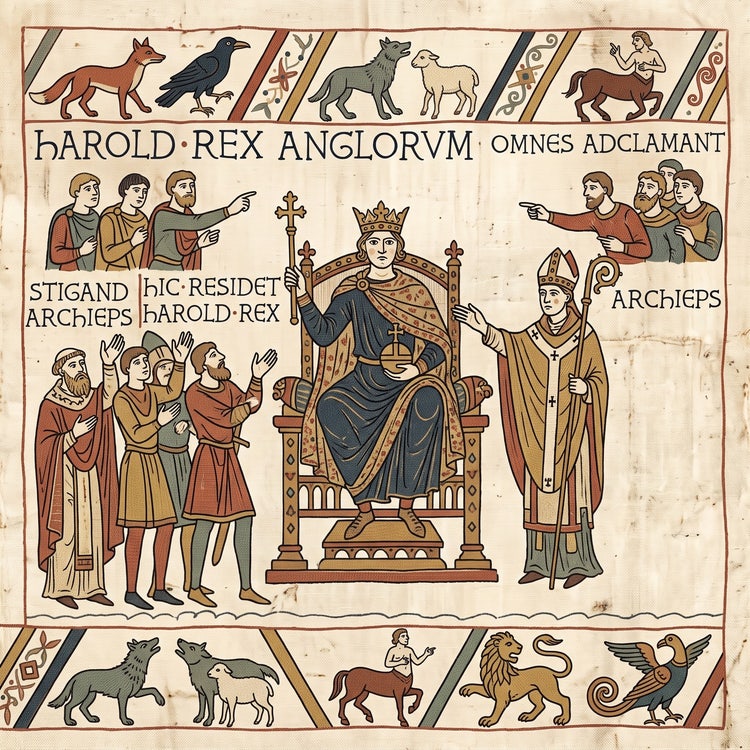 hAROLD·REX ANGLORVM · OMNES ADCLAMANT
STIGAND
ARChIEPS
hIC·RESIDET
hAROLD·REX
ARChIEPS